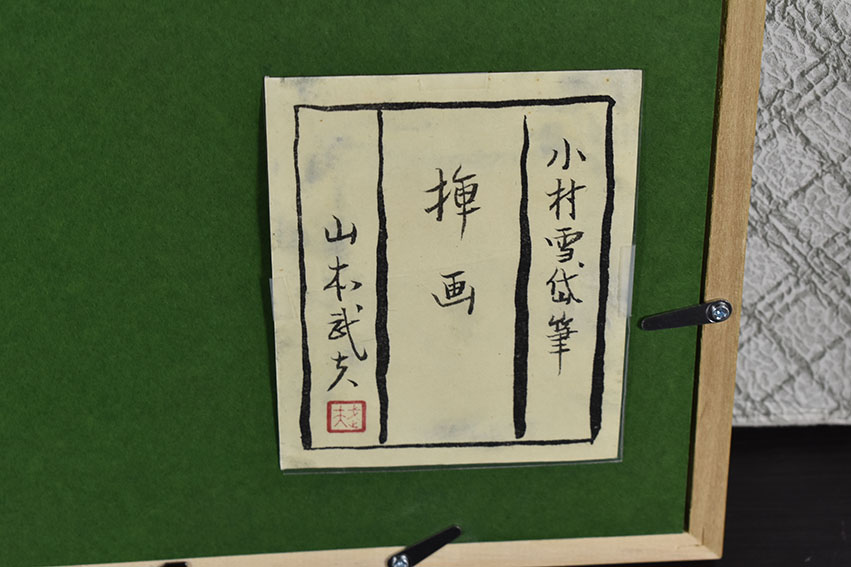 小村雪岱筆
挿画
山本武夫
武夫